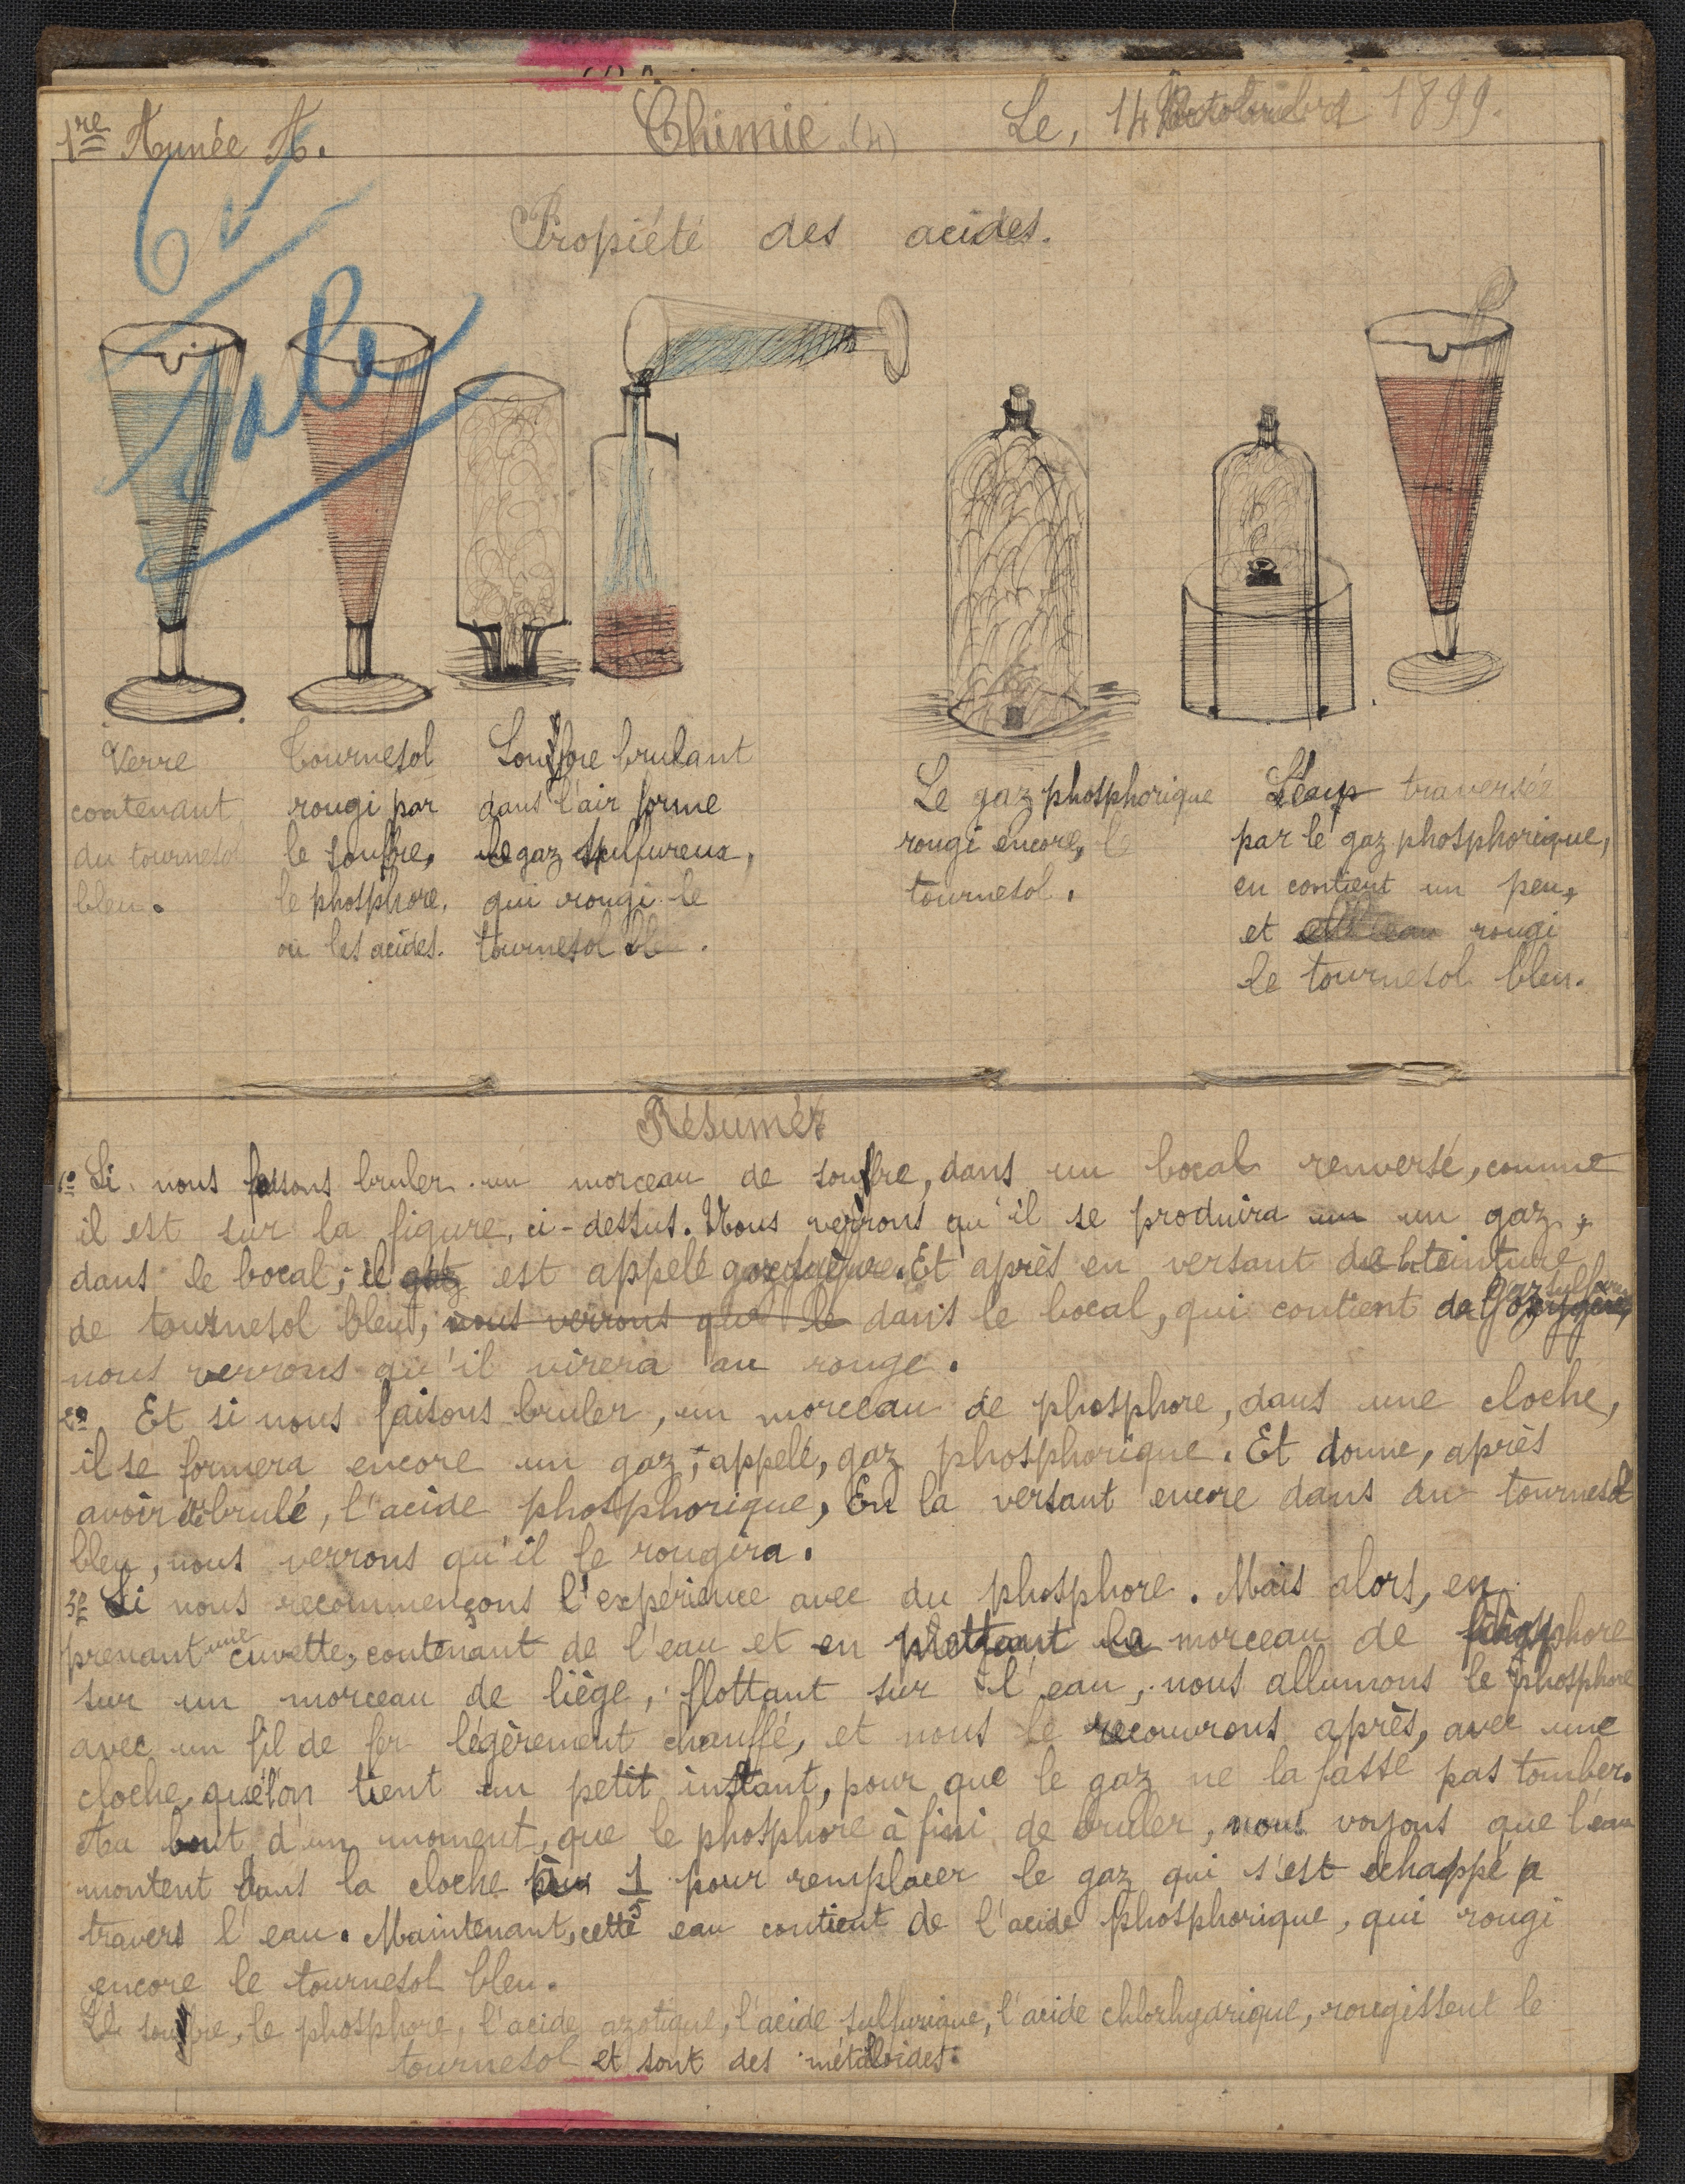 1re Année A.
Chimie (4)
Le, 14 1899.
6
Sale
Propiété des acides.
Verre
contenant
du tournesol
bleu.
Tournesol
rougi par
le soufre,
le phosphore,
ou les acides.
Soufre brulant
dans l'air forme
le gaz sulfureux,
qui rougi le
tournesol
Le gaz phosphorique
rougi encore, le
tournesol.
L'eau traversée
par le gaz phosphorique,
en contient un peu,
et rougi
le tournesol bleu.
Résumer
1º Si nous faisons bruler un morceau de soufre, dans un bocal renversé, comme
il est sur la figure, ci-dessus. Nous verrons qu'il se produira un un gaz,
dans le bocal; il gaz est appelé Et après en versant de la teinture
de tournesol bleu, nous verrons que le dans le bocal, qui contient gaz sulfureux
nous verrons qu'il virera au rouge.
2º. Et si nous faisons bruler, un morceau de phosphore, dans une cloche,
il se formera encore un gaz; appelé, gaz phosphorique. Et donne, après
avoir brulé, l'acide phosphorique, En la versant encore dans du tournesol
bleu, nous verrons qu'il le rougira.
3º Si nous recommençons l'expérience avec du phosphore. Mais alors, en
prenant une cuvette, contenant de l'eau et en mettant le morceau de phosphore
sur un morceau de liège, flottant sur l'eau, nous allumons le phosphore
avec un fil de fer légèrement chauffé, et nous le recouvrons après, avec une
cloche, que l'on tient un petit instant, pour que le gaz ne la fasse pas tomber.
Au bout d'un moment, que le phosphore à fini de bruler, nous voyons que l'eau
montent dans la cloche 1/5 pour remplacer le gaz qui s'est echappé a
travers l'eau. Maintenant, cette eau contient de l'acide phosphorique, qui rougi
encore le tournesol bleu.
Le soufre, le phosphore, l'acide azotique, l'acide sulfurique, l'acide chlorhydrique, rougissent le
tournesol et sont des métalloides.